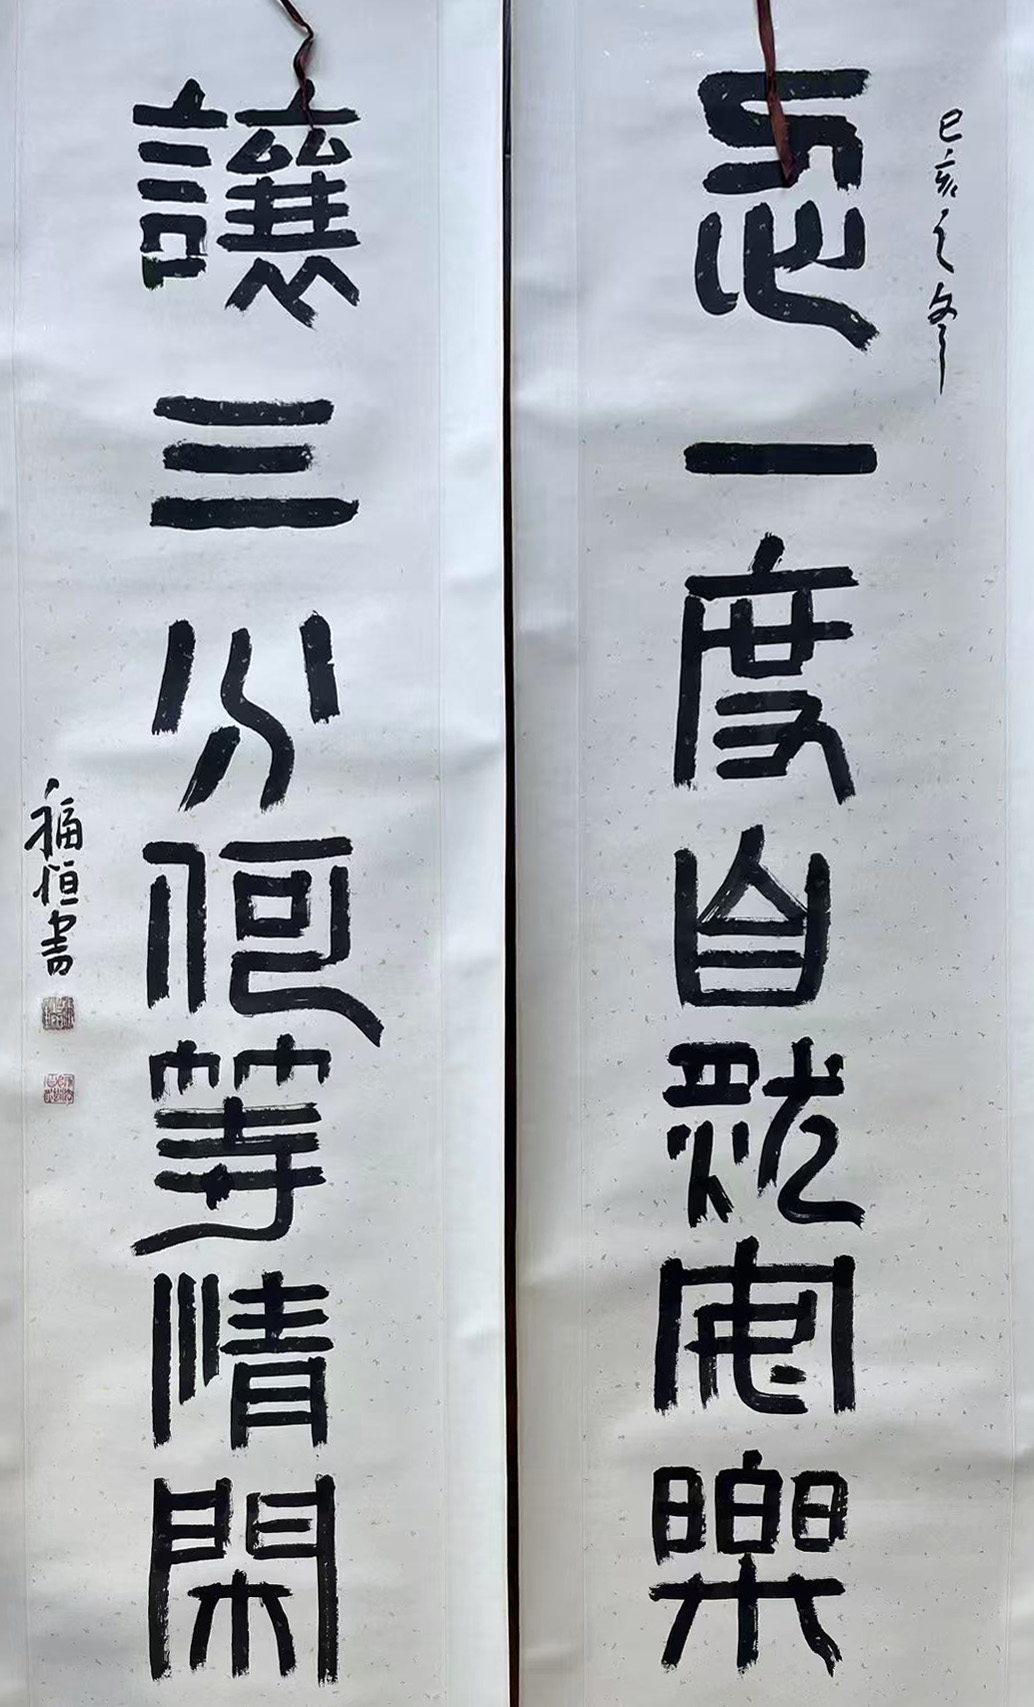 己亥之冬
忍一度自就安樂
讓三分何等清閑
福恒書